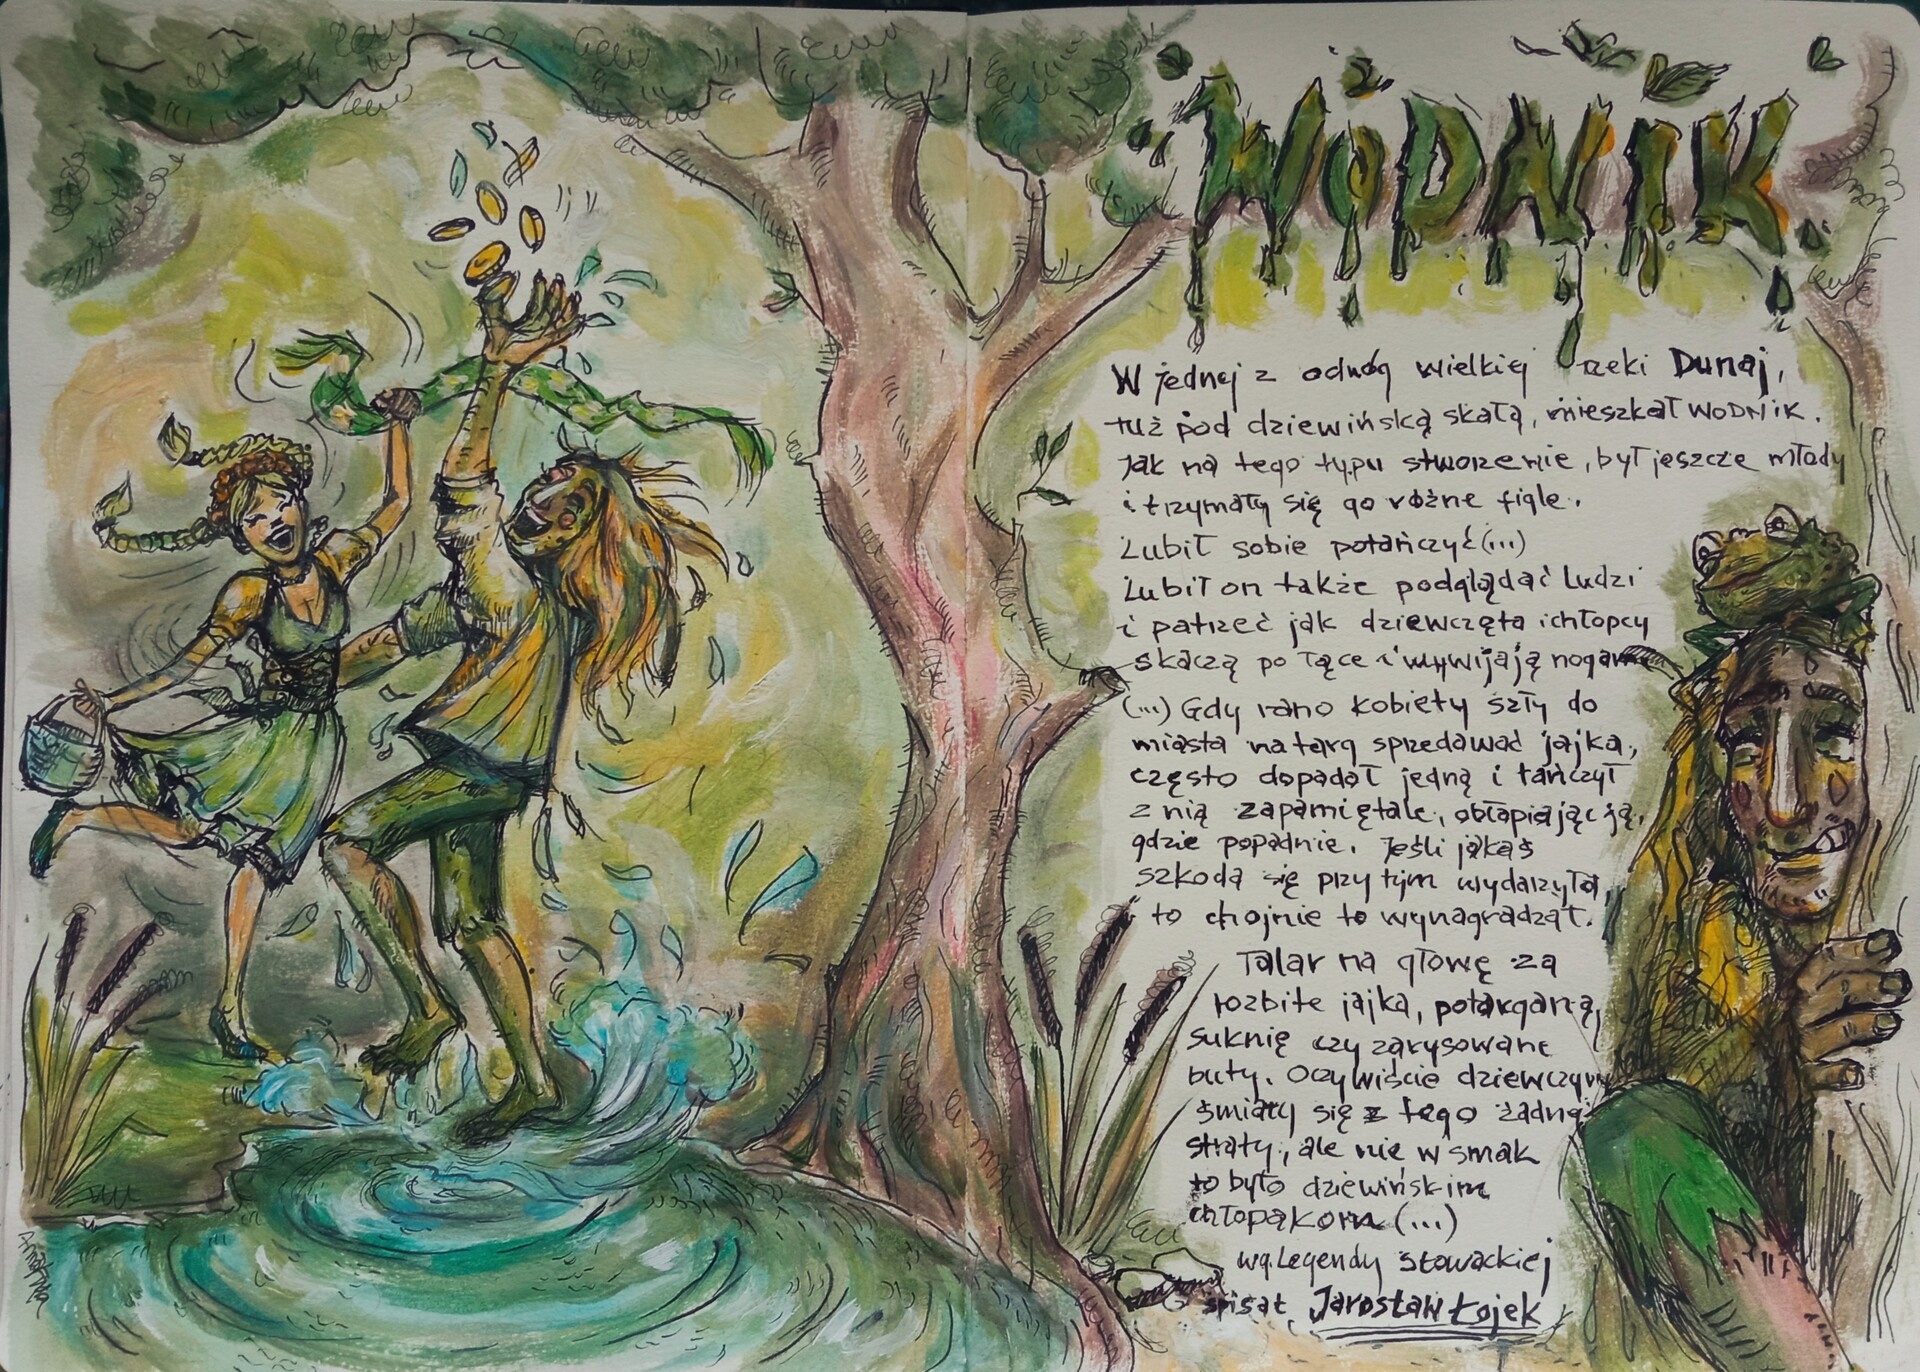 WODNIK
W jednej z odnóg wielkiej rzeki Dunaj,
tuż pod dziewińską skałą, mieszkał WODNIK.
Jak na tego typu stworzenie, był jeszcze młody
i trzymały się go różne figle.
Lubił sobie potańczyć (...)
Lubił on także podglądać ludzi
i patrzeć jak dziewczęta i chłopcy
skaczą po łące i wywijają nogami
(...) Gdy rano kobiety szły do
miasta na targ sprzedawać jajka,
często dopadał jedną i tańczył
z nią zapamiętale, obłapiając ją,
gdzie popadnie. Jeśli jakaś
szkoda się przy tym wydarzyła,
to chojnie to wynagradzał.
Talar na głowę za
rozbite jajka, potarganą
suknię czy zarysowane
buty. Oczywiście dziewczyny
śmiały się z tego żadnej
straty, ale nie w smak
to było dziewińskim
chłopakom (...)
wg. Legendy słowackiej
spisał Jarosław Łojek